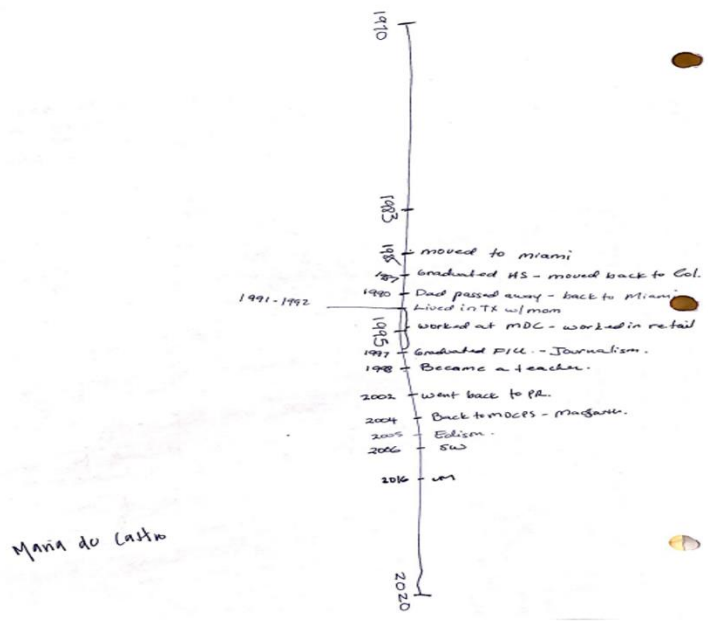 1970
1983
moved to miami
Graduated HS - moved back to Col.
1990 Dad passed away - back to Miami
1991-1992 Lived in TX w/ mom
1995 worked at MDC - worked in retail
1997 Graduated FIU. - Journalism.
1998 Became a teacher.
2002 went back to PR.
2004 Back to MDCPS -
2005 Edism.
2006 SW
2016 UM
2020
Maria de Castro